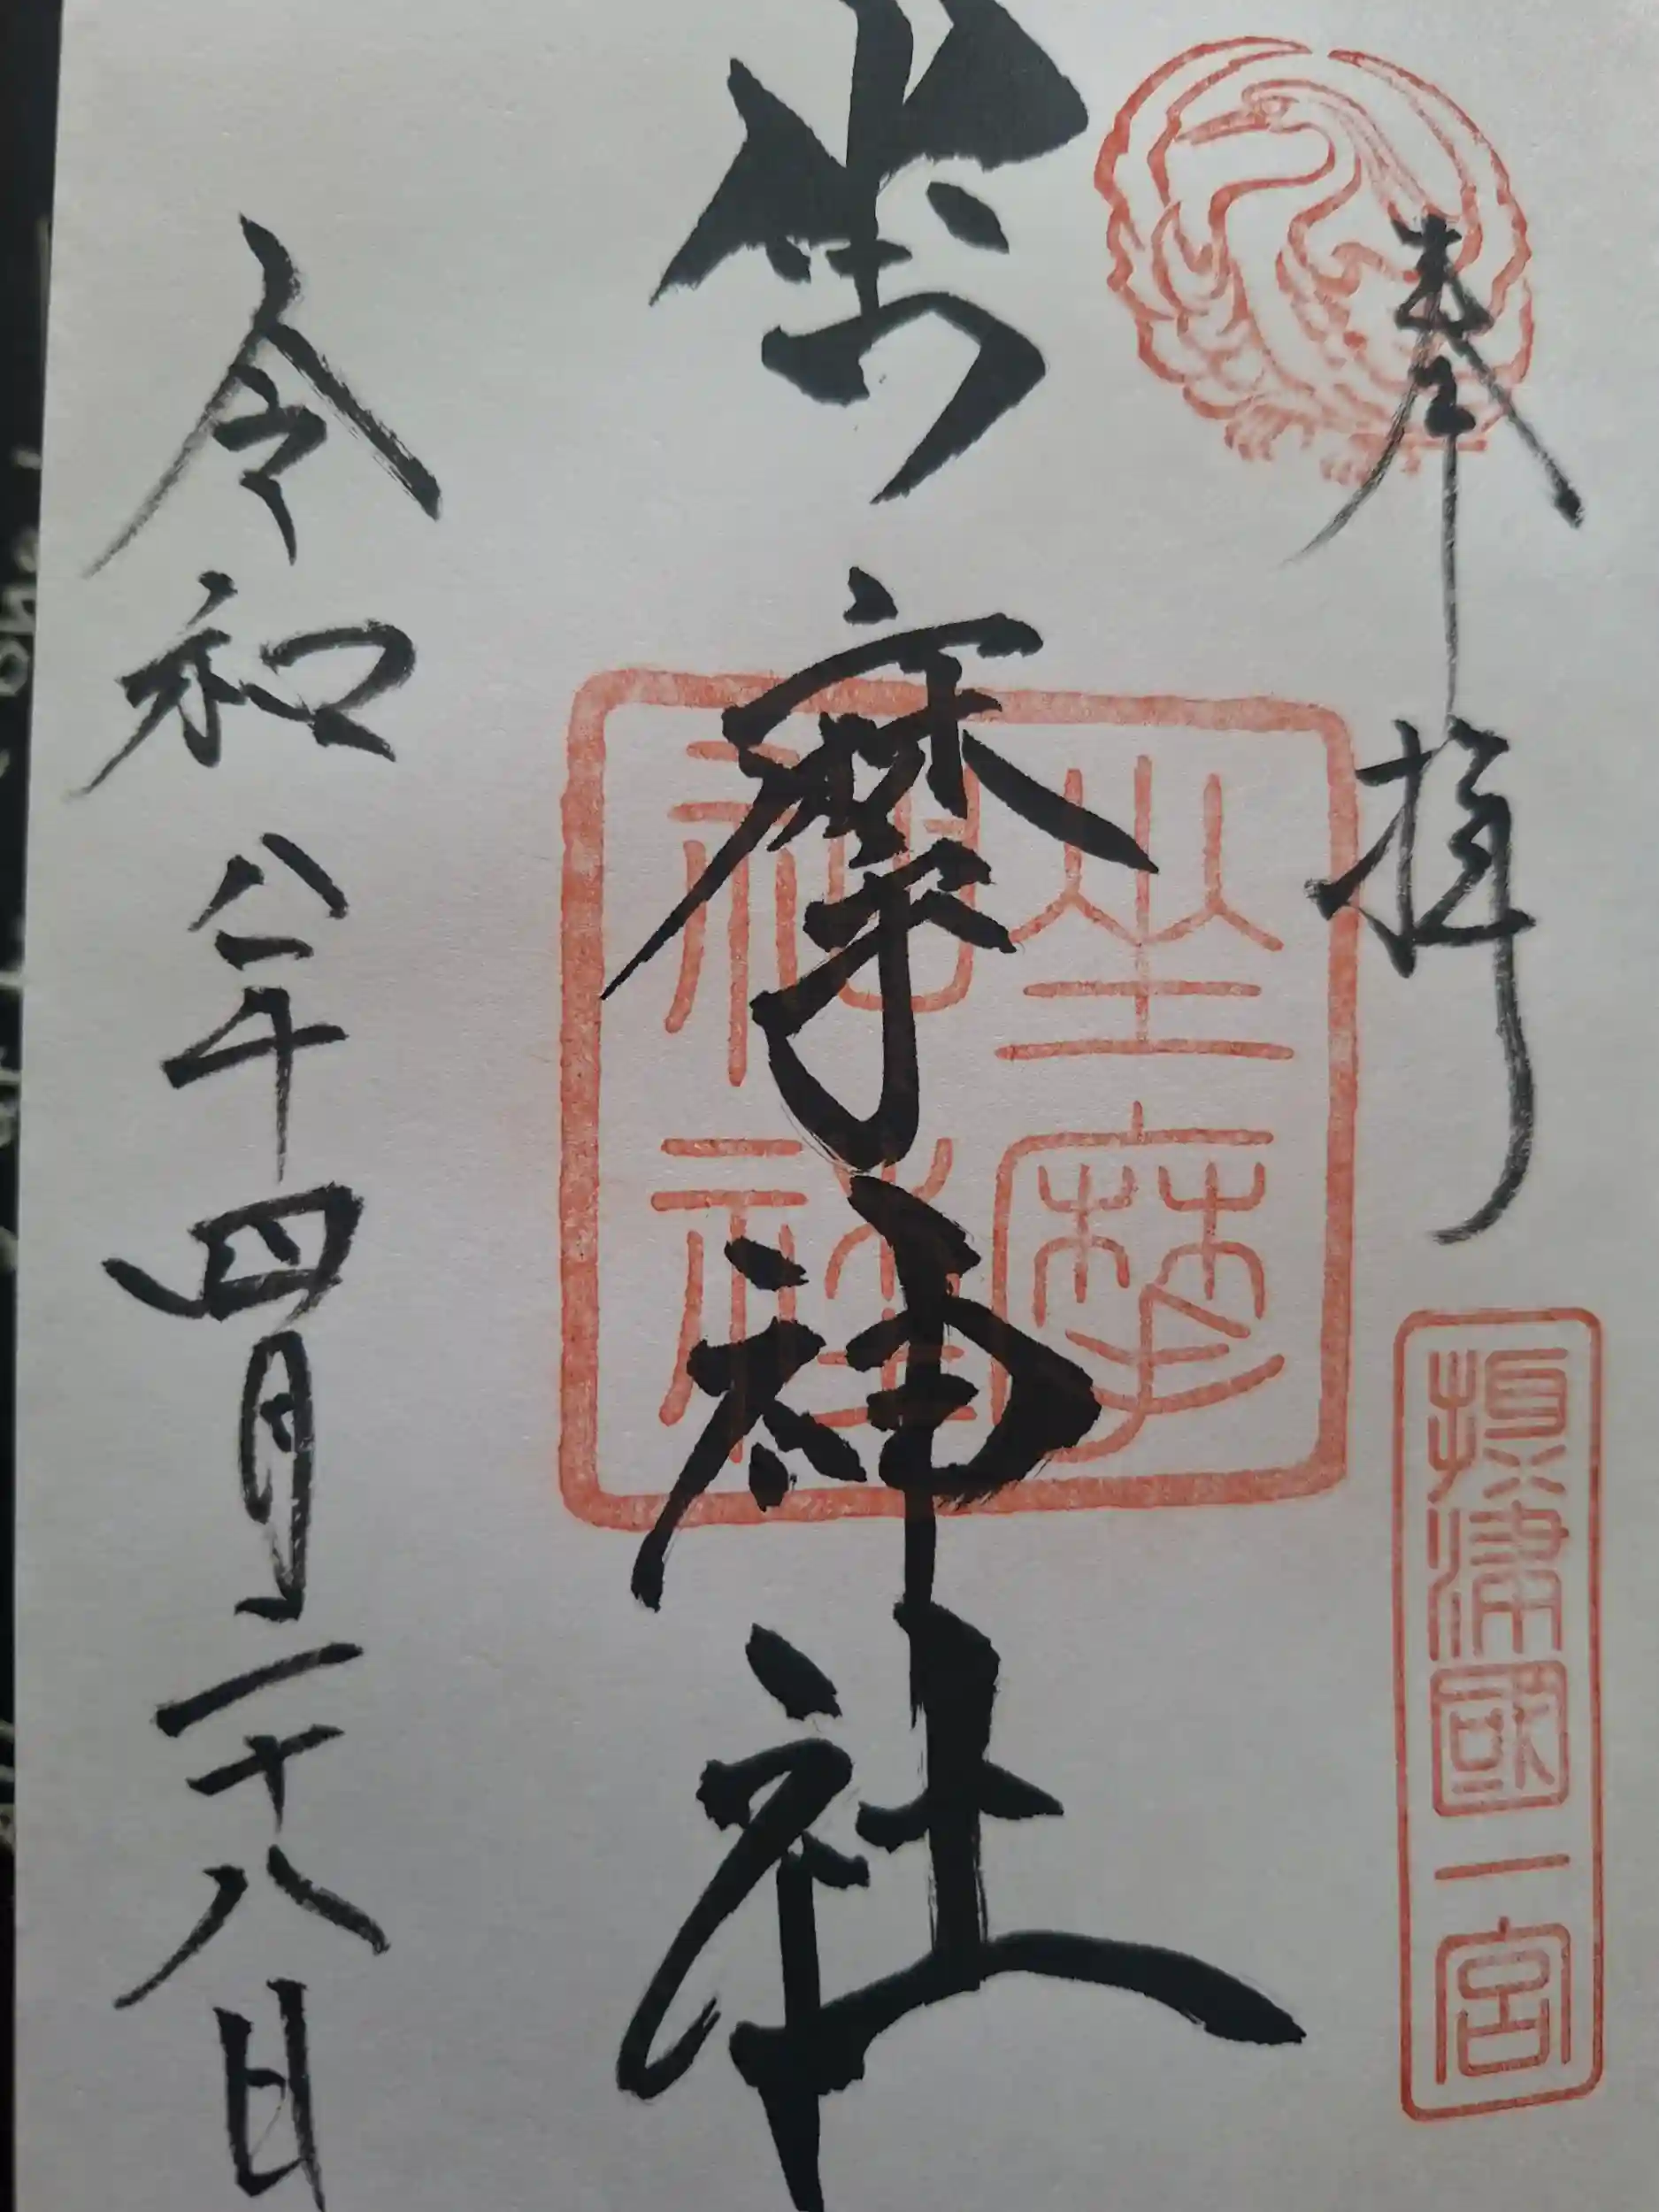 奉拝
摂津國一宮
坐摩神社
坐摩
神社
令和八年四月二十八日